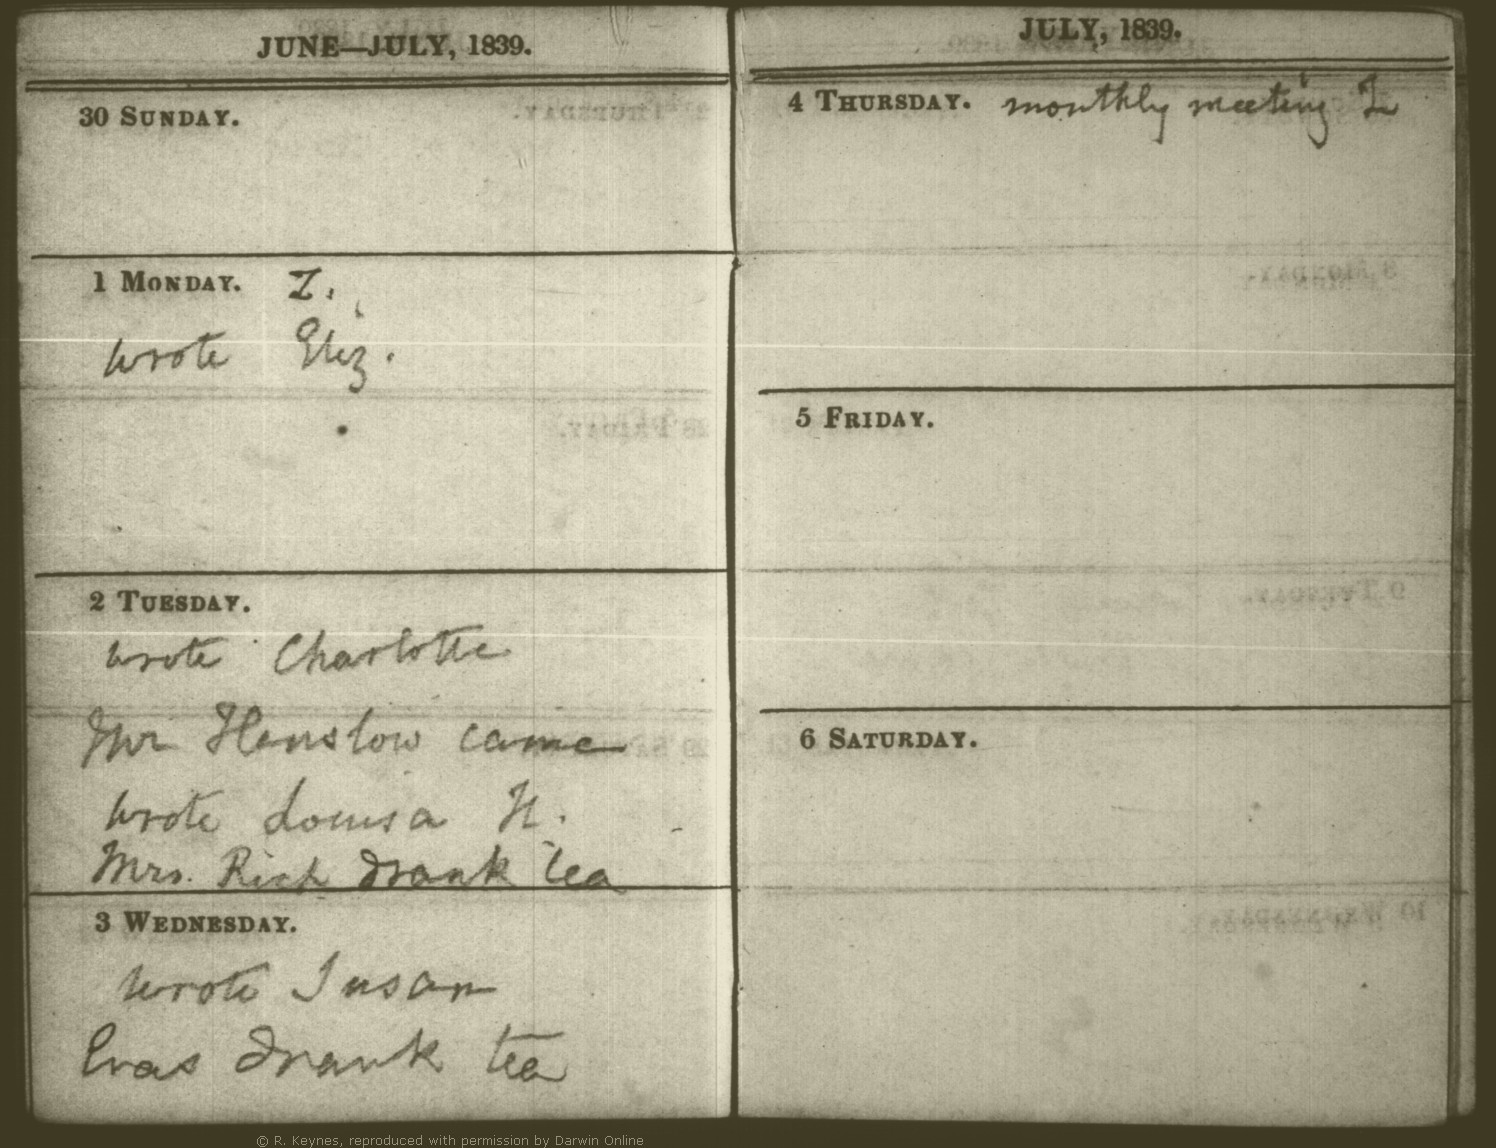 JUNE—JULY, 1839.
30 SUNDAY.
1 MONDAY. Z.
wrote Eliz.
2 TUESDAY.
wrote Charlotte
Mr Henslow came
wrote Louisa H.
Mrs. Rich drank tea
3 WEDNESDAY.
wrote Susan
Eras drank tea
JULY, 1839.
4 THURSDAY. monthly meeting Z
5 FRIDAY.
6 SATURDAY.
© R. Keynes, reproduced with permission by Darwin Online